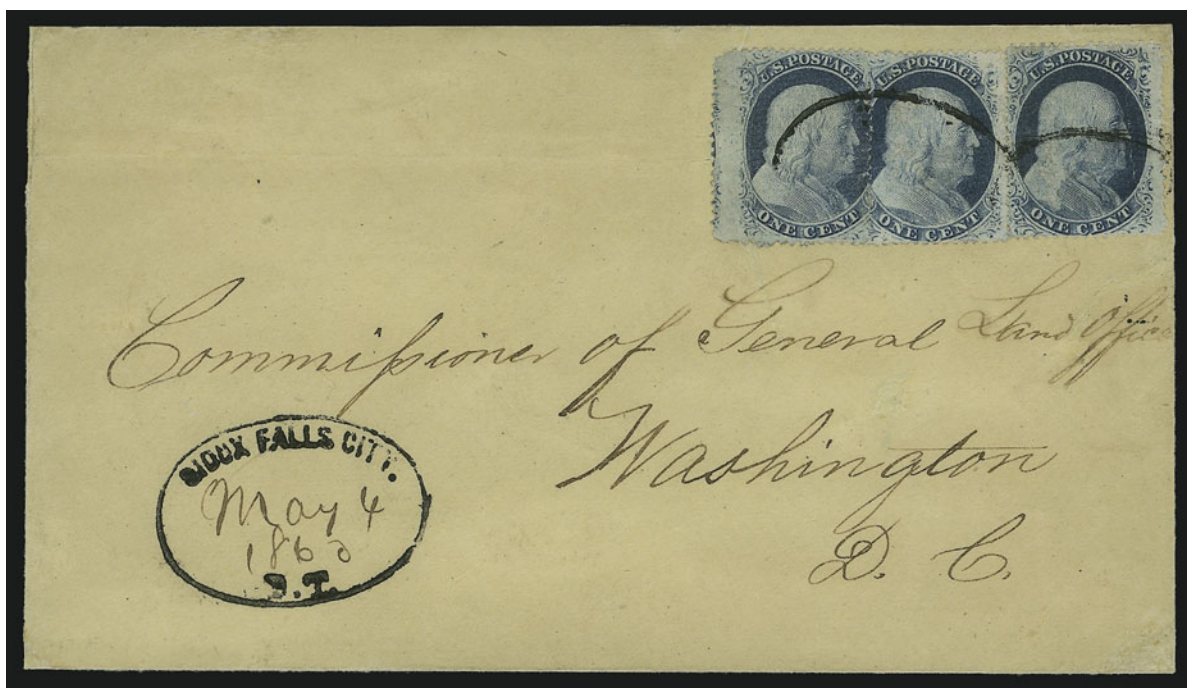 U.S. POSTAGE U.S. POSTAGE U.S. POSTAGE
ONE CENT ONE CENT ONE CENT
Commissioner of General Land Office
Washington
D. C.
SIOUX FALLS CITY.
May 4
1860
D.T.